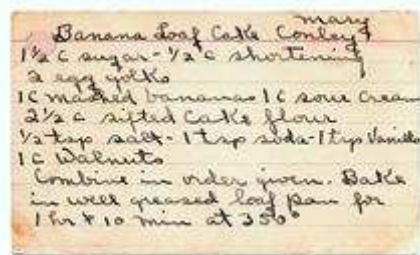 Mary
Banana Loaf Cake Conley
1½ c sugar - ½ c shortening
2 egg yolks
1c mashed bananas 1c sour cream
2½ c sifted cake flour
½ tsp salt - 1 tsp soda - 1 tsp Vanilla
1c Walnuts
Combine in order given. Bake
in well greased loaf pan for
1 hr + 10 min at 350°